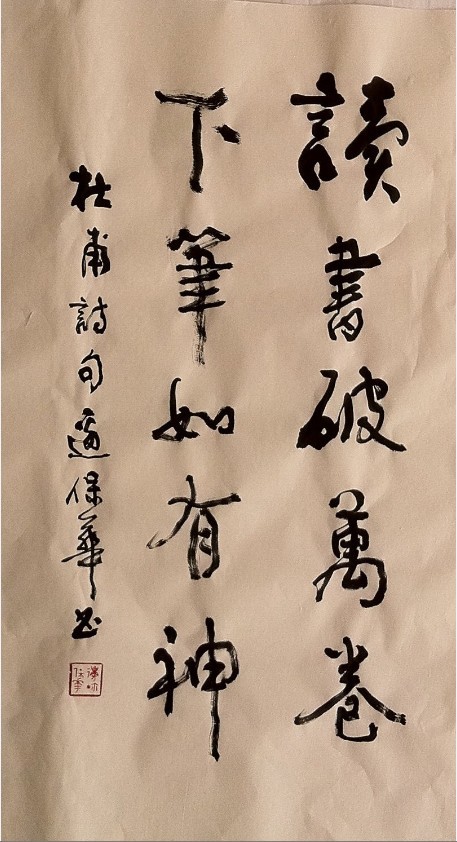 讀書破萬卷
下筆如有神
杜甫詩句邊保華书